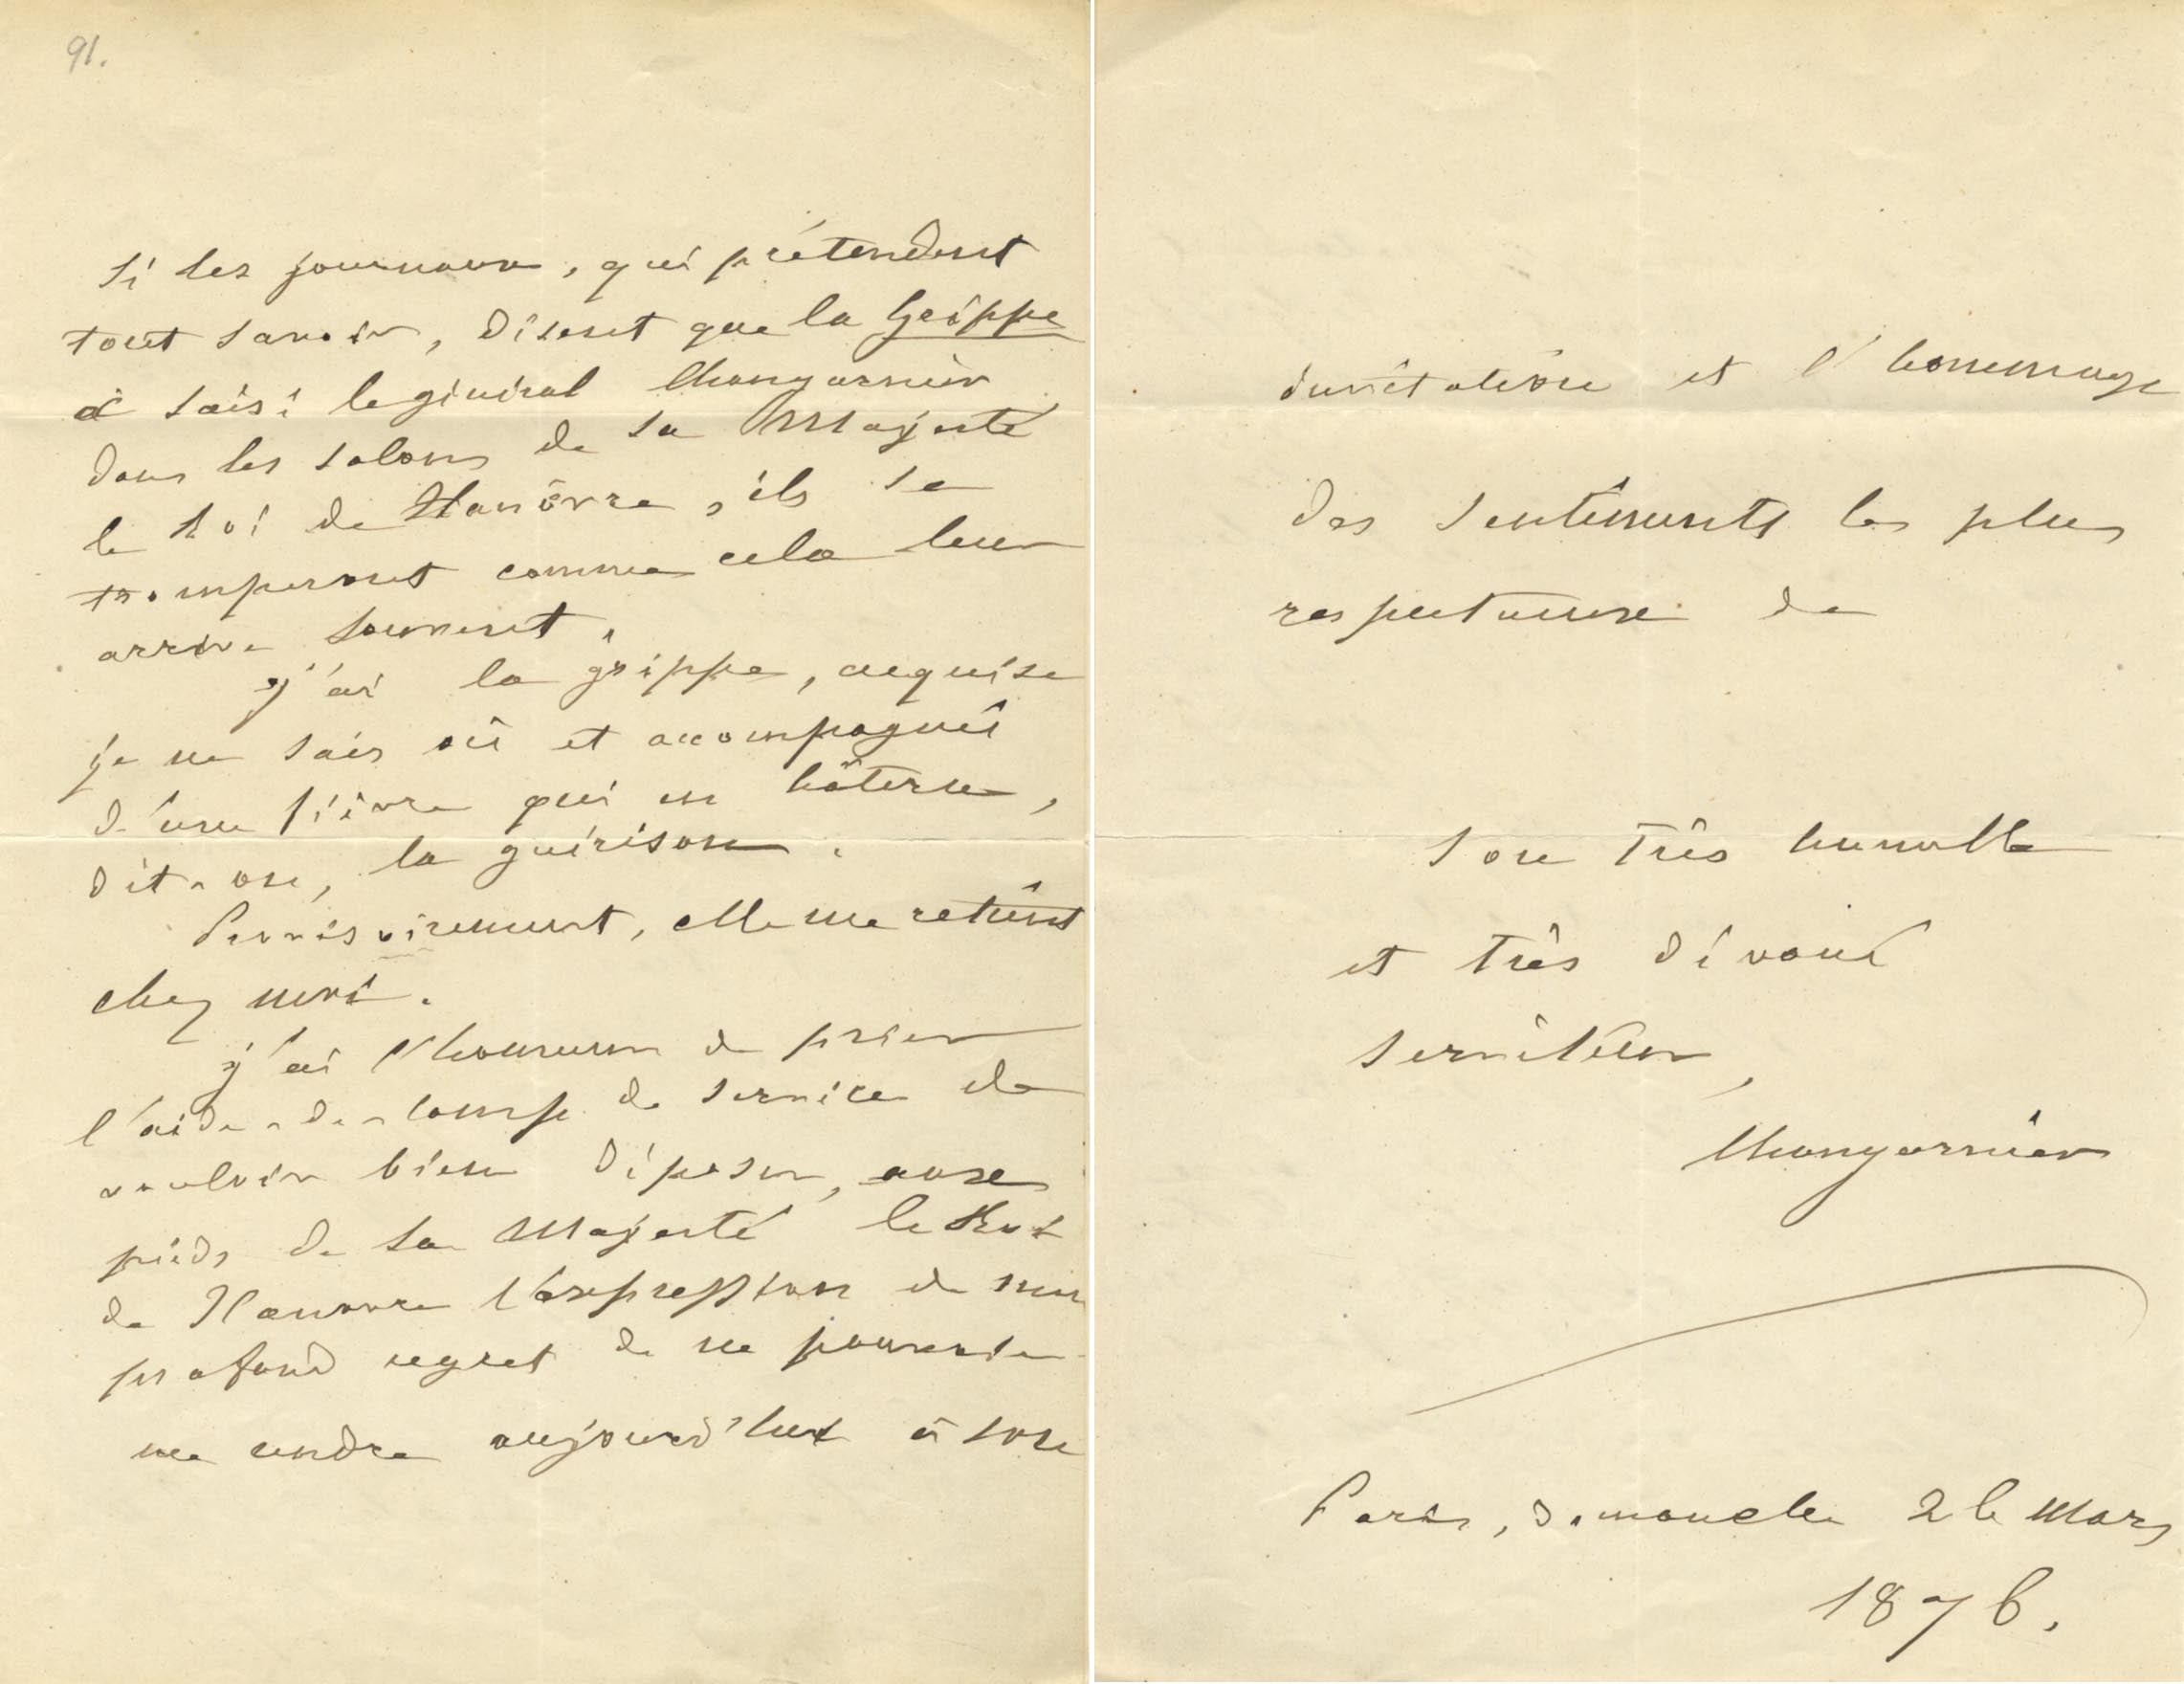 91.
Si les journaux, qui prétendent
tout savoir, disent que la Grippe
a saisi le général Changarnier
dans les salons de Sa Majesté
le Roi de Hanôvre, ils se
tromperont comme cela leur
arrive souvent.
J'ai la grippe, acquise
je ne sais où et accompagnée
d'une fièvre qui en hâtera,
dit-on, la guérison.
Provisoirement, elle me retient
chez moi.
J'ai l'honneur de prier
l'aide-de-camp de service de
vouloir bien déposer, aux
pieds de Sa Majesté le Roi
de Hanovre l'expression de mon
profond regret de ne pouvoir
me rendre aujourd'hui à son
invitation et l'hommage
des sentiments les plus
respectueux de
son très humble
et très dévoué
serviteur,
Changarnier
Paris, dimanche 26 Mars
1876.